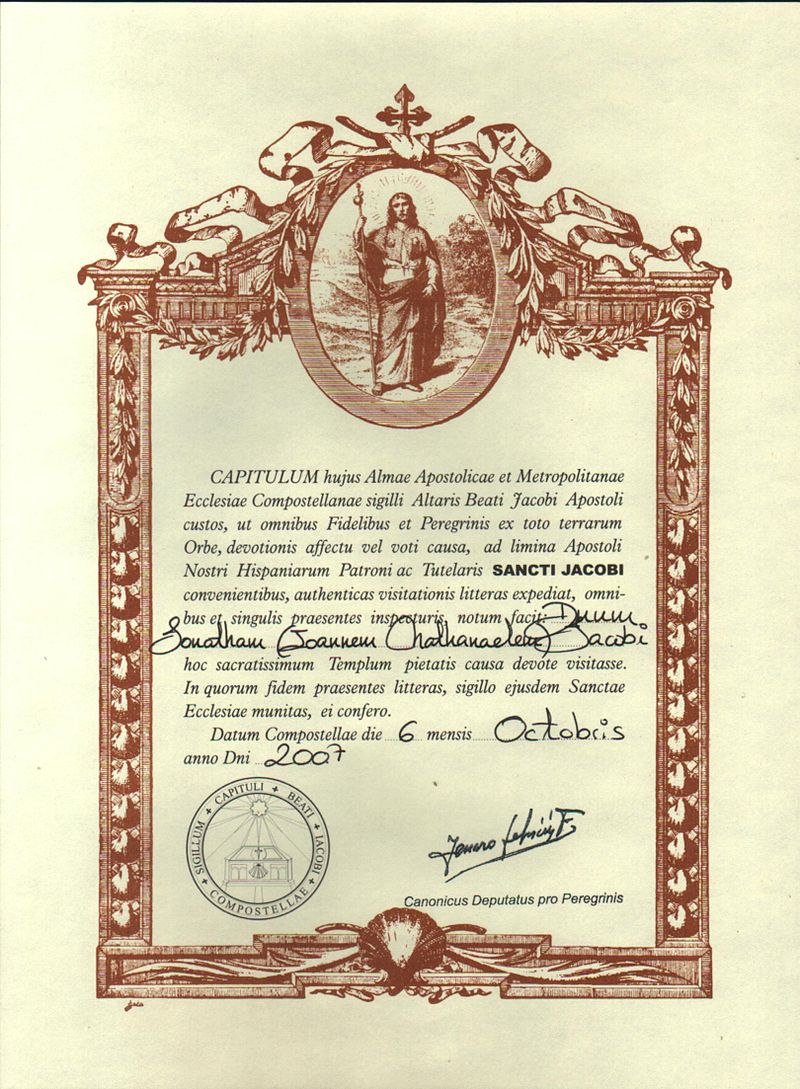 CAPITULUM hujus Almae Apostolicae et Metropolitanae
Ecclesiae Compostellanae sigilli Altaris Beati Jacobi Apostoli
custos, ut omnibus Fidelibus et Peregrinis ex toto terrarum
Orbe, devotionis affectu vel voti causa, ad limina Apostoli
Nostri Hispaniarum Patroni ac Tutelaris SANCTI JACOBI
convenientibus, authenticas visitationis litteras expediat, omni-
bus et singulis praesentes inspecturis, notum facit: Dnum
Jonatham Joannem Nathanaelem Jacobi
hoc sacratissimum Templum pietatis causa devote visitasse.
In quorum fidem praesentes litteras, sigillo ejusdem Sanctae
Ecclesiae munitas, ei confero.
Datum Compostellae die 6 mensis Octobris
anno Dni 2007
SIGILLUM + CAPITULI + BEATI + IACOBI + COMPOSTELLAE +
Canonicus Deputatus pro Peregrinis